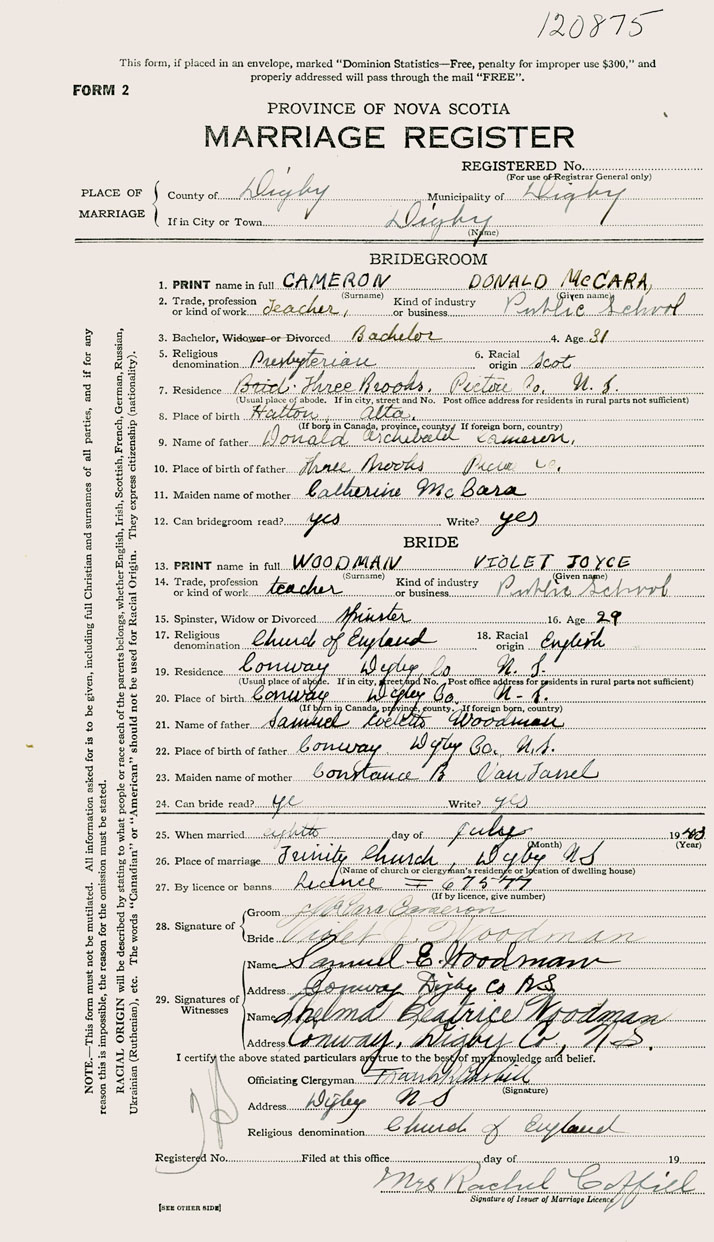 120875
This form, if placed in an envelope, marked "Dominion Statistics—Free, penalty for improper use $300," and
properly addressed will pass through the mail "FREE".
FORM 2
PROVINCE OF NOVA SCOTIA
MARRIAGE REGISTER
REGISTERED No.
(For use of Registrar General only)
PLACE OF MARRIAGE
County of Digby Municipality of Digby
If in City or Town Digby
(Name)
BRIDEGROOM
1. PRINT name in full CAMERON DONALD McCARA,
(Surname) (Given name)
2. Trade, profession or kind of work Teacher, Kind of industry or business Public School
3. Bachelor, Widower or Divorced Bachelor 4. Age 31
5. Religious denomination Presbyterian 6. Racial origin Scot
7. Residence Three Brooks, Pictou Co. N. S.
(Usual place of abode. If in city, street and No. Post office address for residents in rural parts not sufficient)
8. Place of birth Hatton, Alta.
(If born in Canada, province, county. If foreign born, country)
9. Name of father Donald Archibald Cameron,
10. Place of birth of father Three Brooks Co.
11. Maiden name of mother Catherine McCara
12. Can bridegroom read? yes Write? yes
BRIDE
13. PRINT name in full WOODMAN VIOLET JOYCE
(Surname) (Given name)
14. Trade, profession or kind of work teacher Kind of industry or business Public School
15. Spinster, Widow or Divorced Spinster 16. Age 29
17. Religious denomination Church of England 18. Racial origin English
19. Residence Conway Digby Co N. S.
(Usual place of abode. If in city, street and No. Post office address for residents in rural parts not sufficient)
20. Place of birth Conway Digby Co. N. S.
(If born in Canada, province, county. If foreign born, country)
21. Name of father Samuel Woodman
22. Place of birth of father Conway Digby Co. N.S.
23. Maiden name of mother Constance B Van Tassel
24. Can bride read? ye Write? yes
25. When married eighth day of July 1943
(Month) (Year)
26. Place of marriage Trinity Church, Digby NS
(Name of church or clergyman's residence or location of dwelling house)
27. By licence or banns Licence # 67577
(If by licence, give number)
28. Signature of
Groom McCara Cameron
Bride Violet J. Woodman
29. Signatures of Witnesses
Name Samuel E. Woodman
Address Conway Digby Co N.S.
Name Thelma Beatrice Woodman
Address Conway, Digby Co, N.S.
I certify the above stated particulars are true to the best of my knowledge and belief.
Officiating Clergyman
(Signature)
Address Digby N S
Religious denomination Church of England
Registered No. Filed at this office day of 19
Mrs Rachel Coffill
Signature of Issuer of Marriage Licence
[SEE OTHER SIDE]
NOTE.—This form must not be mutilated. All information asked for is to be given, including full Christian and surnames of all parties, and if for any
reason this is impossible, the reason for the omission must be stated.
RACIAL ORIGIN will be described by stating to what people or race each of the parents belongs, whether English, Irish, Scottish, French, German, Russian,
Ukrainian (Ruthenian), etc. The words "Canadian" or "American" should not be used for Racial Origin. They express citizenship (nationality).